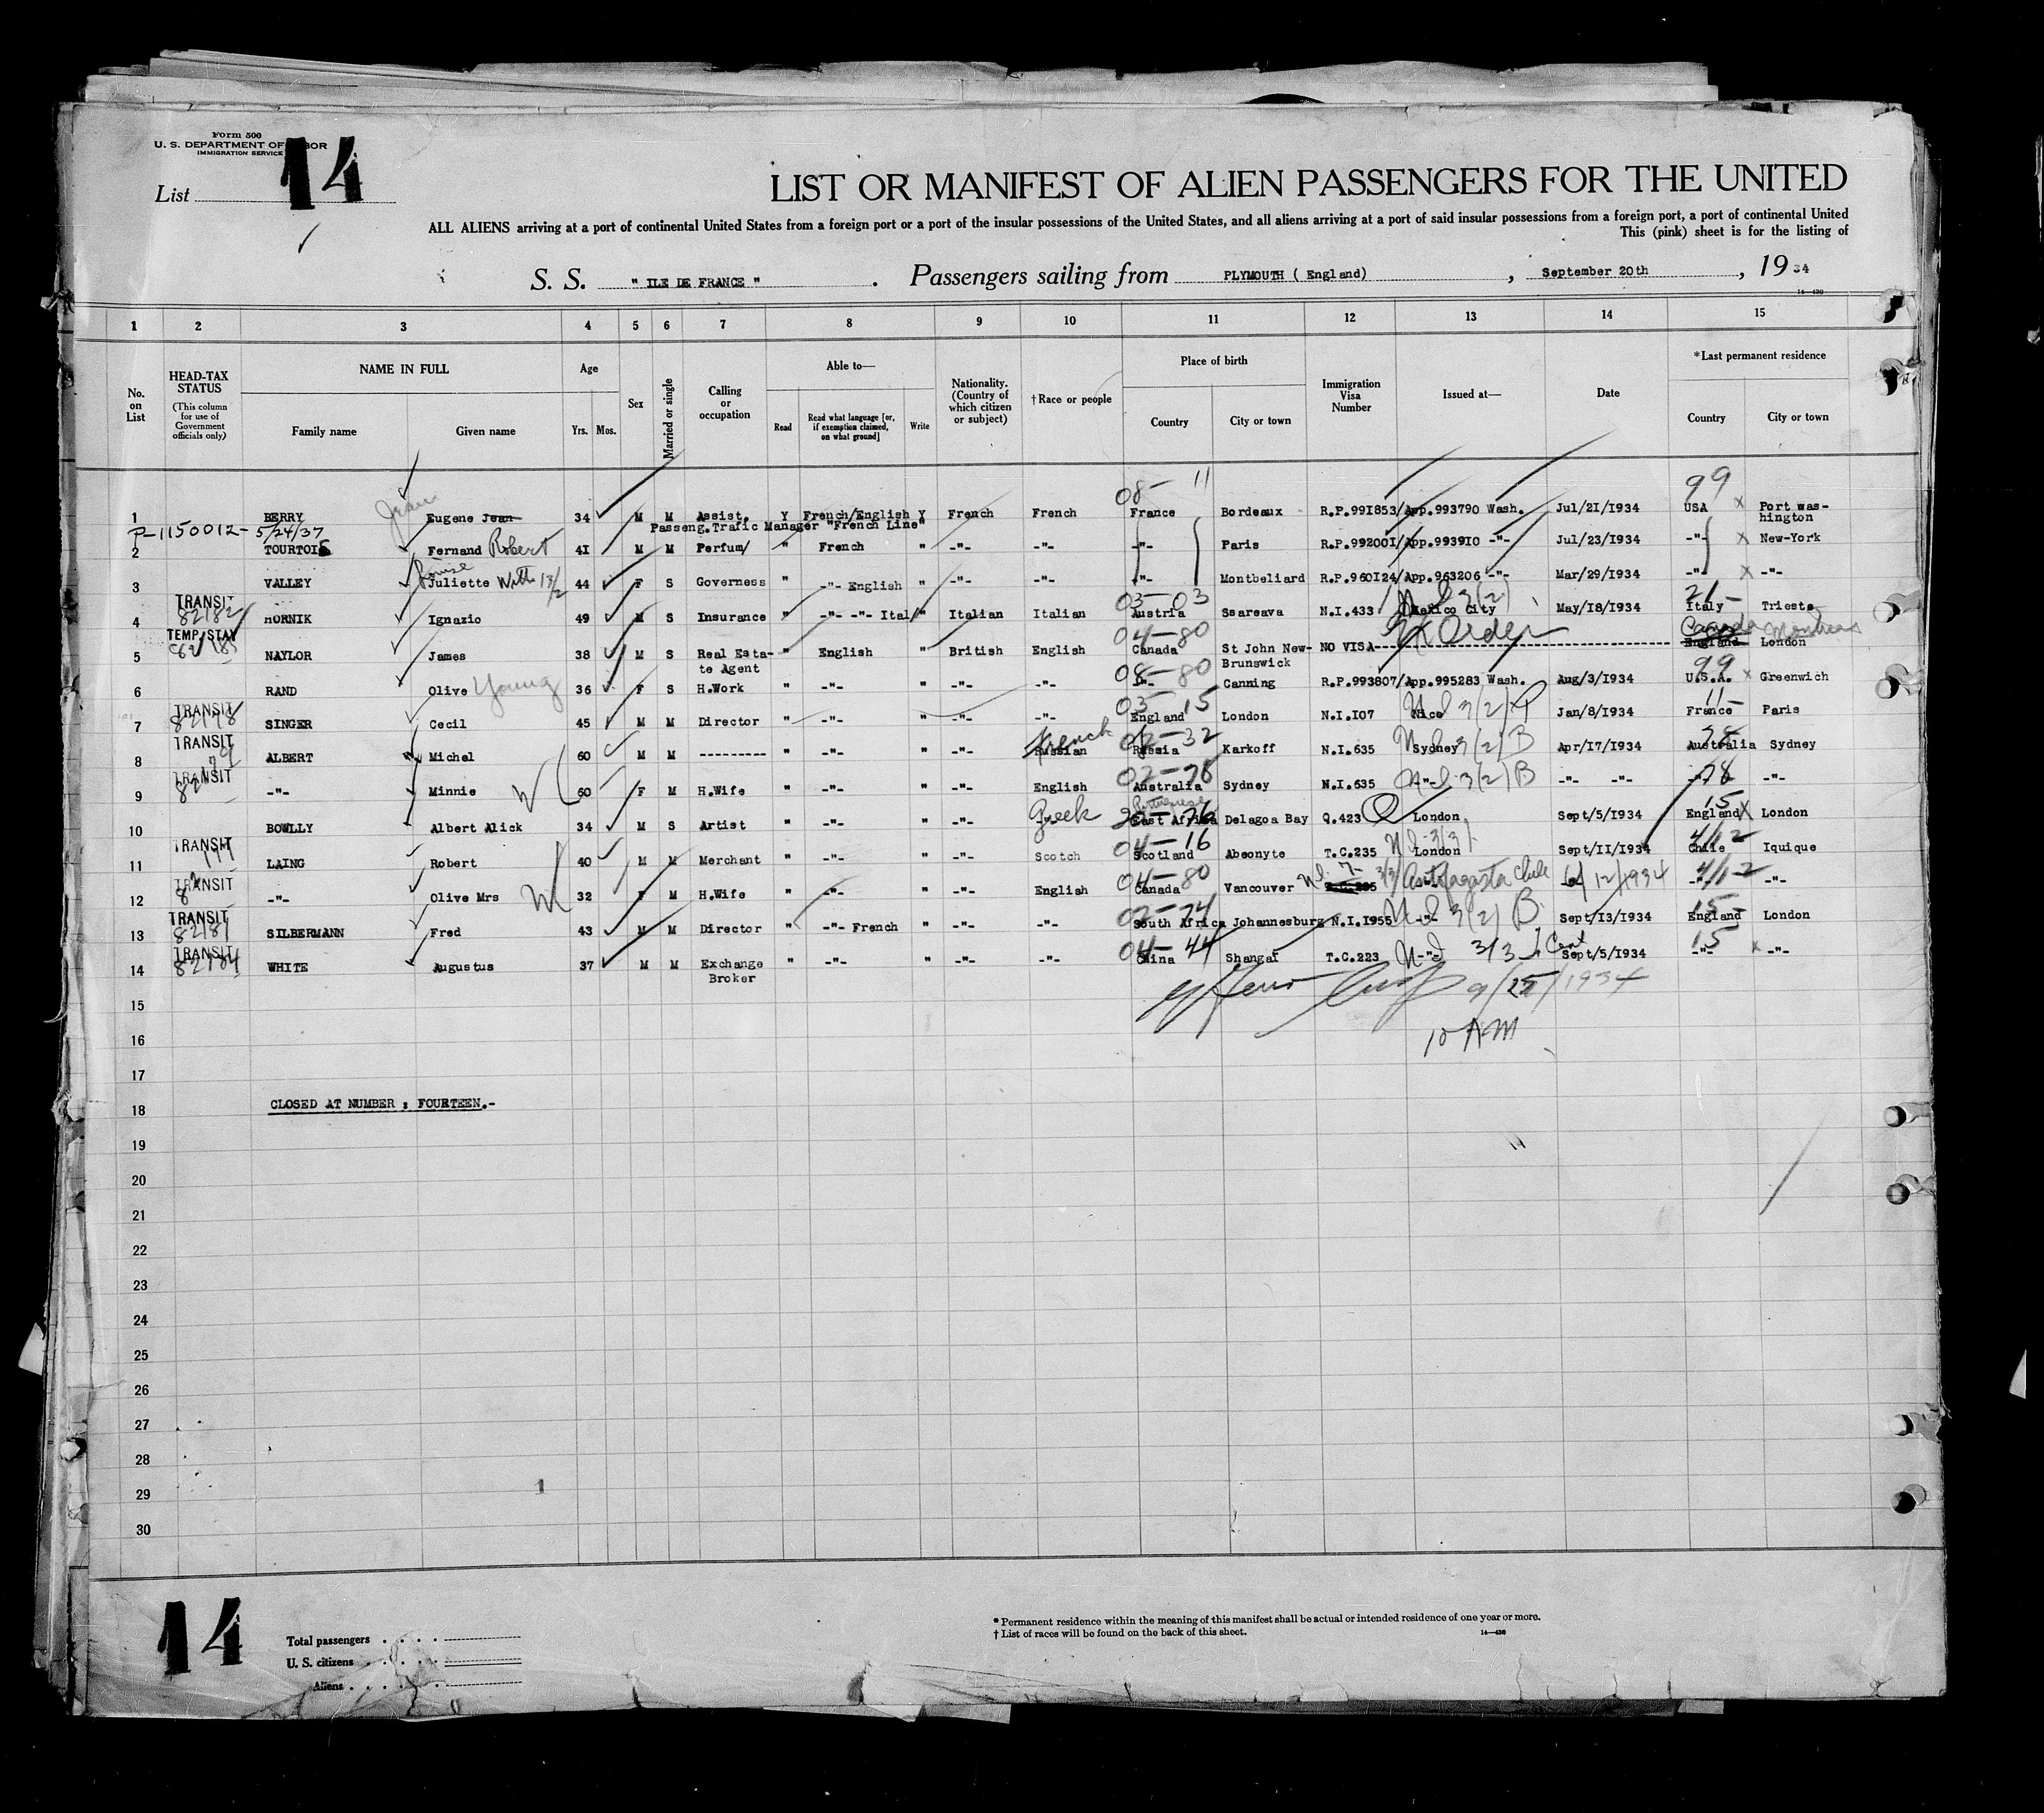 Form 500
U. S. DEPARTMENT OF LABOR
IMMIGRATION SERVICE
List 14
LIST OR MANIFEST OF ALIEN PASSENGERS FOR THE UNITED
ALL ALIENS arriving at a port of continental United States from a foreign port or a port of the insular possessions of the United States, and all aliens arriving at a port of said insular possessions from a foreign port, a port of continental United
This (pink) sheet is for the listing of
S. S. " ILE DE FRANCE " . Passengers sailing from PLYMOUTH ( England) , September 20th , 19 34
1 2 3 4 5 6 7 8 9 10 11 12 13 14 15
No. on List
HEAD-TAX STATUS (This column for use of Government officials only)
NAME IN FULL Family name Given name
Age Yrs. Mos.
Sex
Married or single
Calling or occupation
Able to— Read Read what language [or, if exemption claimed, on what ground] Write
Nationality. (Country of which citizen or subject)
†Race or people
Place of birth Country City or town
Immigration Visa Number
Issued at—
Date
*Last permanent residence Country City or town
08- 11 99
1 BERRY Eugene Jean Jean 34 M M Assist. Y French/English Y French French France Bordeaux R.P.991853/App.993790 Wash. Jul/21/1934 USA x Port was-
P-1150012- 5/24/37 Passeng.Trafic Manager "French Line" hington
2 TOURTOIS Fernand Robert 41 M M Perfum/ " French " -"- -"- -"- Paris R.P.992001/App.993910 -"- Jul/23/1934 -"- x New-York
Louise
3 VALLEY Juliette 44 F S Governess " -"- English " -"- -"- -"- Montbeliard R.P.960124/App.963206 -"- Mar/29/1934 -"- x -"-
TRANSIT 82182 03-03 3(2) 21-
4 HORNIK Ignazio 49 M S Insurance " -"- -"- Ital/" Italian Italian Austria Ssareava N.I.433 Mexico City May/18/1934 Italy Trieste
TEMP/STAY 04-80 Order Canada
5 NAYLOR James 38 M S Real Esta- " English " British English Canada St John New- NO VISA-------- England London
te Agent Brunswick
08-80 99
6 RAND Olive Young 36 F S H.Work " -"- " -"- -"- -"- Canning R.P.993807/App.995283 Wash. Aug/3/1934 U.S.A. x Greenwich
TRANSIT 82178 03-15 3(2) 11-
7 SINGER Cecil 45 M M Director " -"- " -"- -"- England London N.I.107 Nice Jan/8/1934 France Paris
TRANSIT French 02-32 3(2) B 78
8 ALBERT Michel 60 M M ---------- " -"- " -"- Russian Russia Karkoff N.I.635 Sydney Apr/17/1934 Australia Sydney
TRANSIT 02-78 3(2) B 78
9 -"- Minnie 60 F M H.Wife " -"- " -"- English Australia Sydney N.I.635 -"- -"- -"- -"- -"-
Greek Portuguese 15
10 BOWLLY Albert Alick 34 M S Artist " -"- " -"- -"- East Africa Delagoa Bay Q.423 London Sept/5/1934 England x London
TRANSIT 04-16 3/3 4/12
11 LAING Robert 40 M M Merchant " -"- " -"- Scotch Scotland Abeonyte T.C.235 London Sept/11/1934 Chile Iquique
TRANSIT 04-80 3/3 Antofagasta Chile 12/1934 4/12
12 -"- Olive Mrs 32 F M H.Wife " -"- " -"- English Canada Vancouver T.C.235 -"- -"- -"-
TRANSIT 82181 02-74 3(2) B 15-
13 SILBERMANN Fred 43 M M Director " -"- French " -"- -"- South Africa Johannesburg N.I.1955 -"- Sept/13/1934 England London
TRANSIT 82184 04-44 3/3 15
14 WHITE Augustus 37 M M Exchange " -"- " -"- -"- China Shangaï T.C.223 -"- Sept/5/1934 -"- x -"-
Broker
9/25/1934
15
16 10 AM
17
18 CLOSED AT NUMBER : FOURTEEN.-
19
20
21
22
23
24
25
26
27
28
29
30
14
Total passengers
U. S. citizens
Aliens
* Permanent residence within the meaning of this manifest shall be actual or intended residence of one year or more.
† List of races will be found on the back of this sheet. 14—430